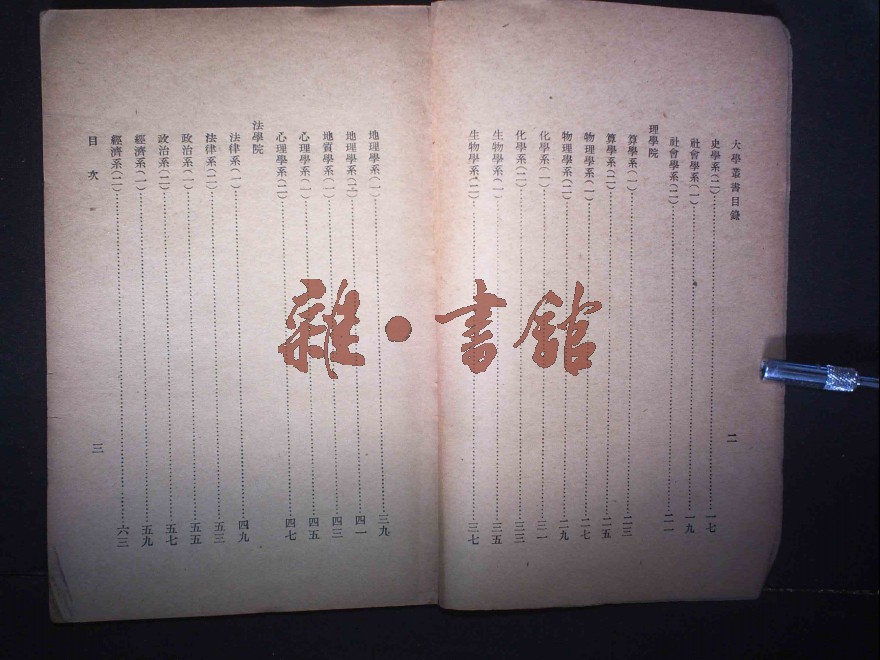 大學叢書目錄
史學系(二)……一七
社會學系(一)……一九
社會學系(二)……二一
理學院
算學系(一)……二三
算學系(二)……二五
物理學系(一)……二七
物理學系(二)……二九
化學系(一)……三一
化學系(二)……三三
生物學系(一)……三五
生物學系(二)……三七
二
地理學系(一)……三九
地理學系(二)……四一
地質學系(一)……四三
心理學系(一)……四五
心理學系(二)……四七
法學院
法律系(一)……四九
法律系(二)……五三
政治系(一)……五五
政治系(二)……五七
經濟系(一)……五九
經濟系(二)……六三
目次
三
雜·書館